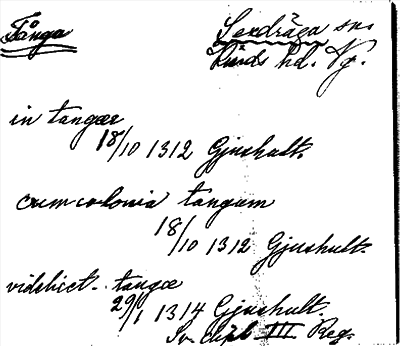 Tånga Sexdräga sn.
Kinds hd. Vg.
in tangær
18/10 1312 Gjushult.
cum colonia tangum
18/10 1312 Gjushult.
videlicet tangæ
29/1 1314 Gjushult.
Sv. dipl III Reg.